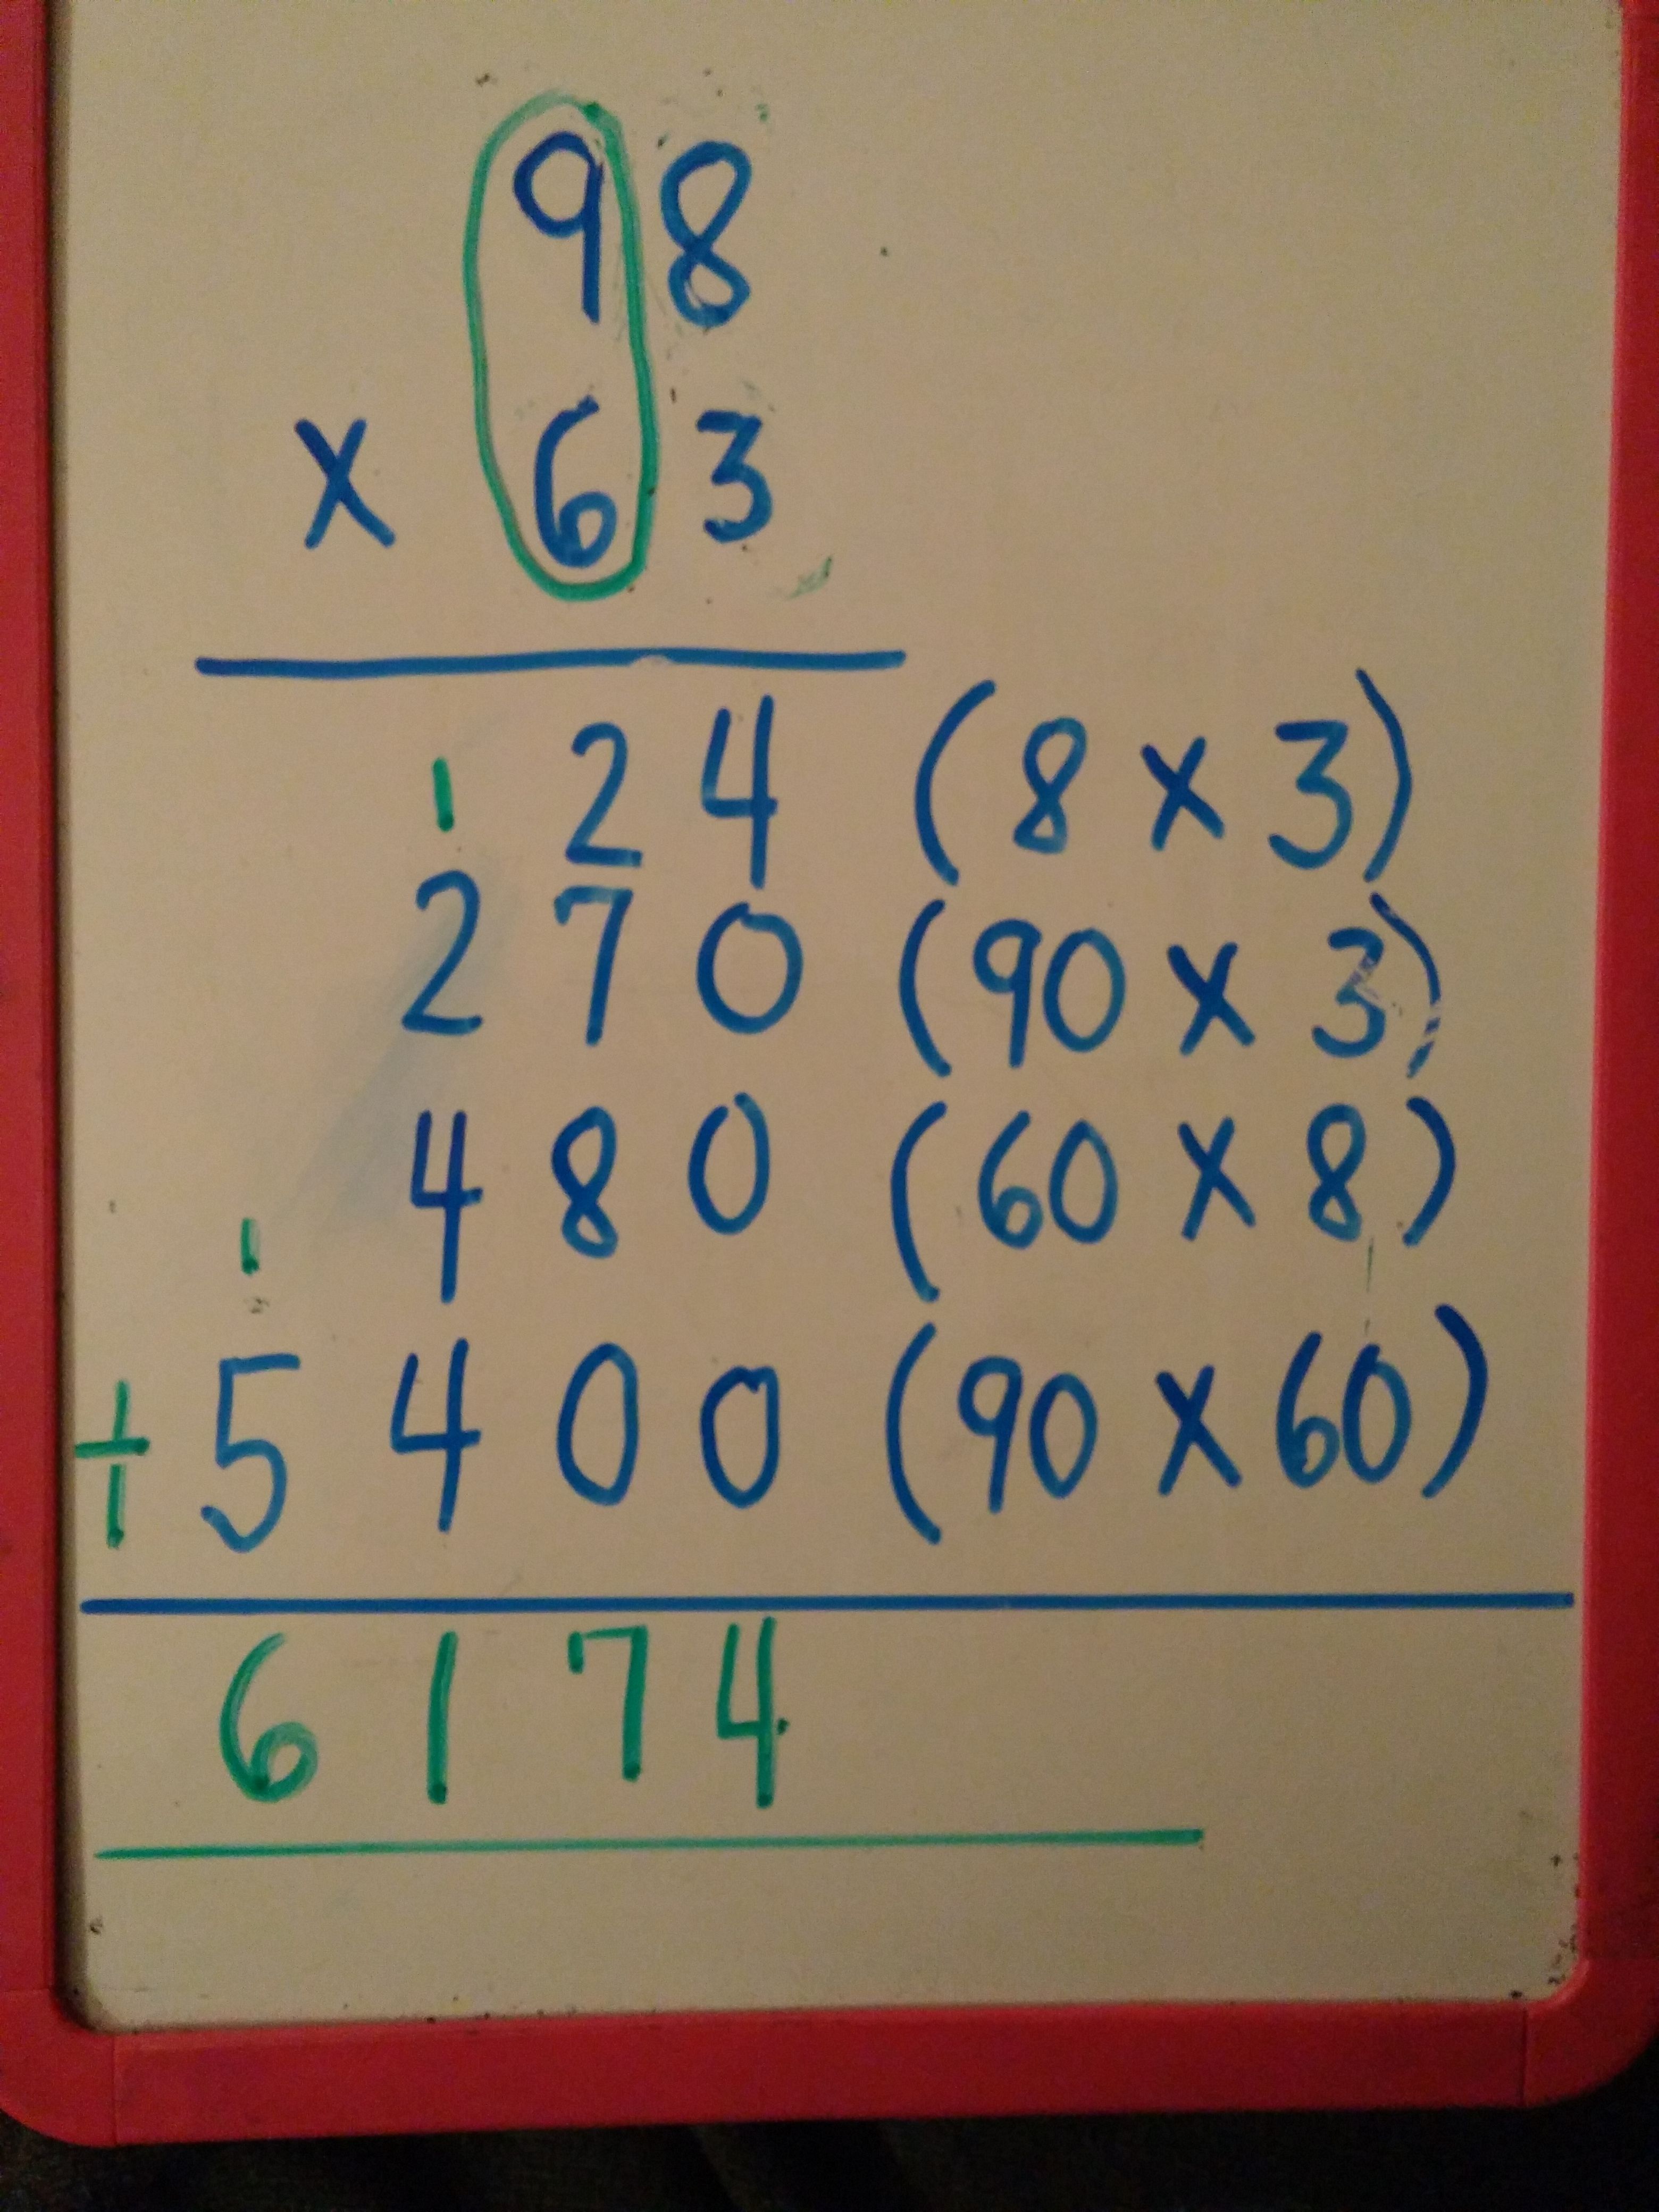 98
x 63
1
24 (8 x 3)
270 (90 x 3)
480 (60 x 8)
1
+ 5400 (90 x 60)
6174